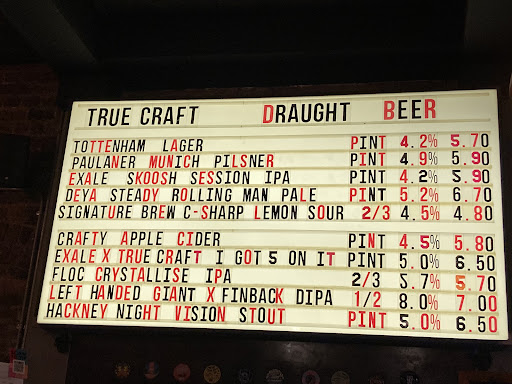 TRUE CRAFT DRAUGHT BEER
TOTTENHAM LAGER PINT 4.2% 5.70
PAULANER MUNICH PILSNER PINT 4.9% 5.90
EXALE SKOOSH SESSION IPA PINT 4.2% 5.90
DEYA STEADY ROLLING MAN PALE PINT 5.2% 6.70
SIGNATURE BREW C-SHARP LEMON SOUR 2/3 4.5% 4.80
CRAFTY APPLE CIDER PINT 4.5% 5.80
EXALE X TRUE CRAFT I GOT 5 ON IT PINT 5.0% 6.50
FLOC CRYSTALLISE IPA 2/3 5.7% 5.70
LEFT HANDED GIANT X FINBACK DIPA 1/2 8.0% 7.00
HACKNEY NIGHT VISION STOUT PINT 5.0% 6.50